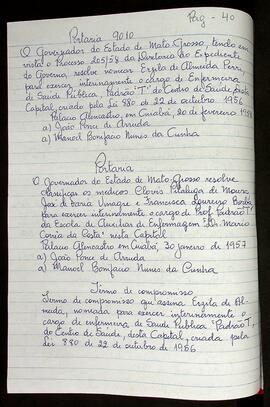 Pag - 40
Portaria 9010
O Governador do Estado de Mato Grosso, tendo em
vista o Processo 205/58 da Diretoria do Expediente
do Governo, resolve nomear Ezila de Almeida Pera,
para exercer interinamente o cargo de Enfermeira
de Saúde Publica Padrão "T" do Centro de Saúde, desta
Capital, criado pela Lei 880 de 22 de outubro 1956
Palacio Alencastro, em Cuiabá, 20 de fevereiro
a) João Ponce de Arruda
a) Manoel Bonifacio Nunes da Cunha
Portaria
O Governador do Estado de Mato Grosso resolve
classifiqa os medicos Clovis Pitaluga de Moura,
José de Faria Vinagre e Francisca Loureiro Borba
para exercer interinamente o cargo de Prof. Padrão "T"
da Escola de Auxiliar de Enfermagem "Dr. Mario
Corrêa da Costa" nesta Capital
Palacio Alencastro em Cuiabá, 30 janeiro de 1957
a) João Ponce de Arruda
a) Manoel Bonifacio Nunes da Cunha
Termo de compromisso
Termo de compromisso que assina Ezila de Al-
meida, nomeada para exercer interinamente o
cargo de enfermeira de Saude Publica "Padrão T",
do Centro de Saúde, desta Capital, criada pela
Lei 880 de 22 de outubro de 1956